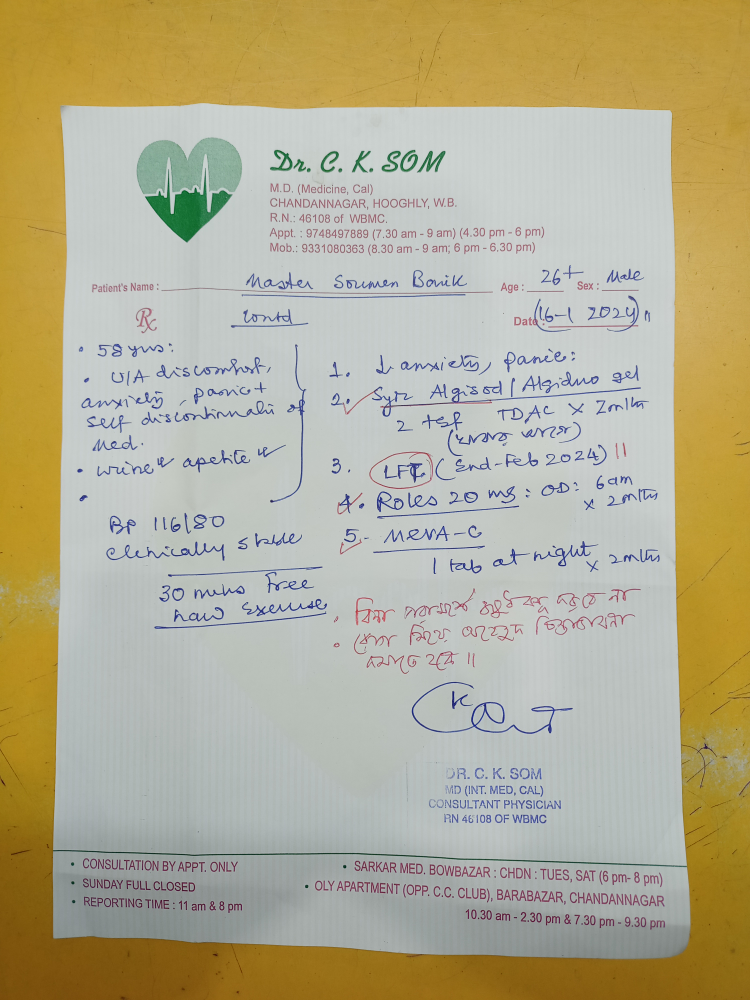 Dr. C. K. SOM
M.D. (Medicine, Cal)
CHANDANNAGAR, HOOGHLY, W.B.
R.N.: 46108 of WBMC.
Appt. : 9748497889 (7.30 am - 9 am) (4.30 pm - 6 pm)
Mob.: 9331080363 (8.30 am - 9 am; 6 pm - 6.30 pm)
Patient's Name : Master Soumen Banik Age : 26+ Sex : Male
Rx contd Date : (16-1 2024)
• 58 yrs:
• U/A discomfort,
anxiety, panic+
self discontinuati of
Med.
• urine apetite
•
BP 116/80
Clinically stable
30 mins Free
hand Exercise
1. ↓ anxiety, panic:
2. Syrz Algisod / Algiduo gel
2 tsf TDAC x 2mths
3. LFT (End-Feb 2024) ||
4. Roles 20 mg : OD: 6am
x 2mths
5. - MRVA-G
1 tab at night x 2mths
• বিনা পরামর্শে ওষুধ বন্ধ করবে না
• চিন্তাভাবনা
কমাতে হবে ||
DR. C. K. SOM
MD (INT. MED, CAL)
CONSULTANT PHYSICIAN
RN 46108 OF WBMC
• CONSULTATION BY APPT. ONLY
• SUNDAY FULL CLOSED
• REPORTING TIME : 11 am & 8 pm
• SARKAR MED. BOWBAZAR : CHDN : TUES, SAT (6 pm- 8 pm)
• OLY APARTMENT (OPP. C.C. CLUB), BARABAZAR, CHANDANNAGAR
10.30 am - 2.30 pm & 7.30 pm - 9.30 pm